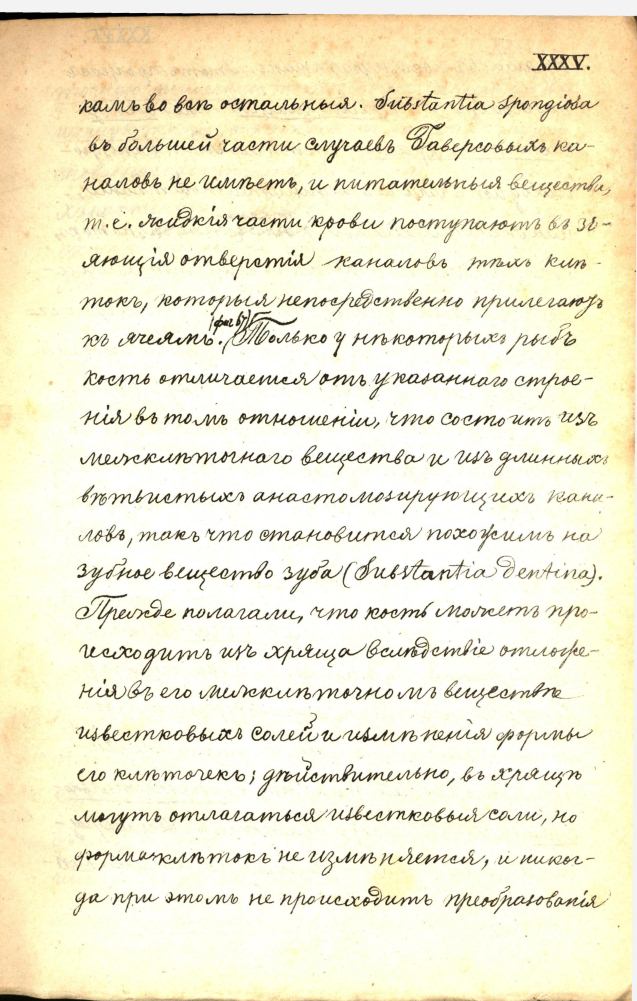 XXXV.
камъ во всѣ остальныя. Substantia spongiosa
въ большей части случаевъ Гаверсовыхъ ка-
наловъ не имѣетъ, и питательныя вещества,
т. е. жидкія части крови поступаютъ въ зі-
яющія отверстія каналовъ тѣхъ клѣ-
токъ, которыя непосредственно прилегаютъ
(фиг 67)
къ ячеямъ. Только у нѣкоторыхъ рыбъ
кость отличается отъ указаннаго строе-
нія въ томъ отношеніи, что состоитъ изъ
межклѣточнаго вещества и изъ длинныхъ
вѣтвистыхъ анастомозирующихъ кана-
ловъ, такъ что становится похожимъ на
зубное вещество зуба (Substantia dentina).
Прежде полагали, что кость можетъ про-
исходить изъ хряща вслѣдствіе отложе-
нія въ его межклѣточномъ веществѣ
известковыхъ солей и измѣненія формы
его клѣточекъ; дѣйствительно, въ хрящѣ
могутъ отлагаться известковыя соли, но
форма клѣтокъ не измѣняется, и никог-
да при этомъ не происходитъ преобразованія